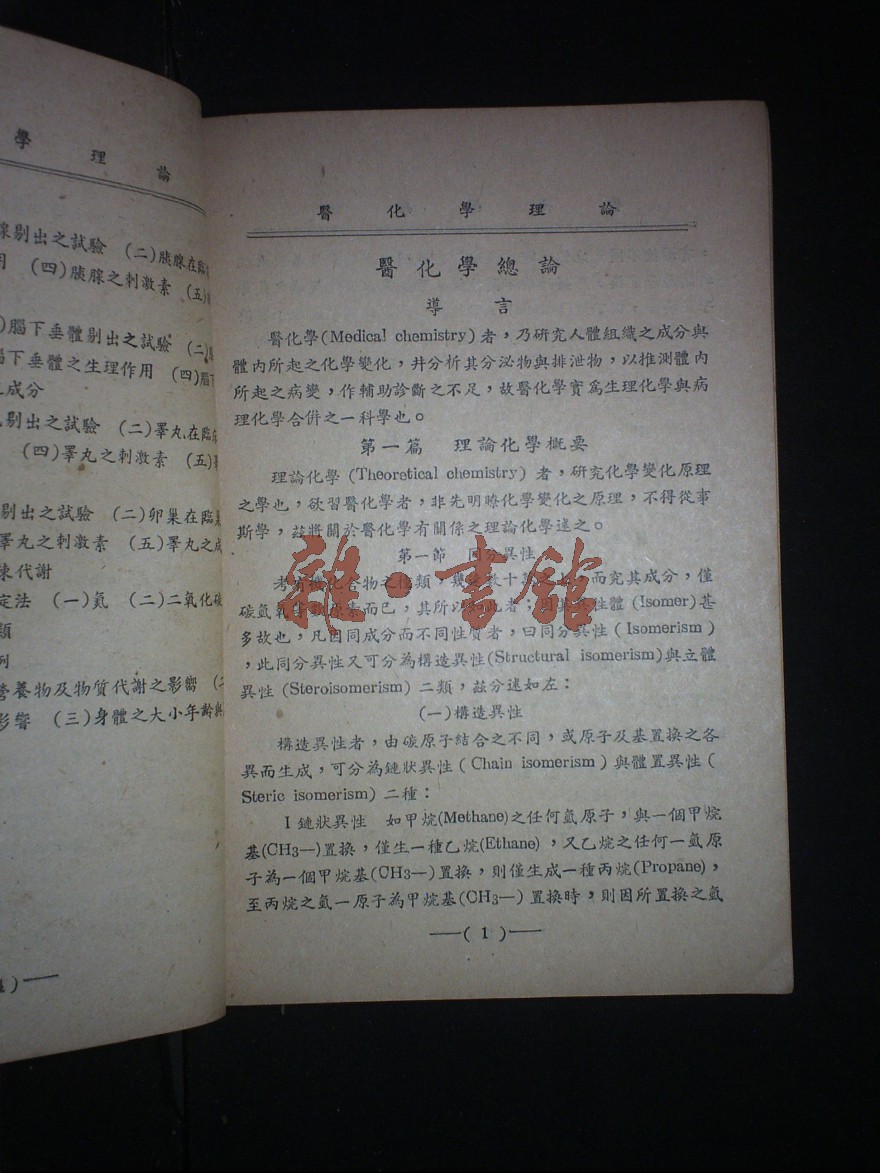 學 理 論
腺剔出之試驗 (二)胰腺在臨
用 (四)胰腺之刺激素 (五)
)腦下垂體剔出之試驗 (二)
腦下垂體之生理作用 (四)腦下
成分
剔出之試驗 (二)睪丸在臨
(四)睪丸之刺激素 (五)
剔出之試驗 (二)卵巢在臨
睪丸之刺激素 (五)睪丸之成
代謝
定法 (一)氮 (二)二氧化碳
類
例
營養物及物質代謝之影響
影響 (三)身體之大小年齡與
醫化學理論
醫化學總論
導言
醫化學(Medical chemistry)者,乃研究人體組織之成分與
體內所起之化學變化,幷分析其分泌物與排泄物,以推測體內
所起之病變,作輔助診斷之不足,故醫化學實爲生理化學與病
理化學合併之一科學也。
第一篇 理論化學概要
理論化學 (Theoretical chemistry) 者,研究化學變化原理
之學也,欲習醫化學者,非先明瞭化學變化之原理,不得從事
斯學,茲將關於醫化學有關係之理論化學述之。
第一節 同分異性
考有機化合物之種類,數十萬之,而究其成分,僅
碳氫氧原素而已,其所以如此者;因其異性體 (Isomer)甚
多故也,凡因同成分而不同性質者,曰同分異性 ( Isomerism )
,此同分異性又可分為構造異性(Structural isomerism)與立體
異性 (Steroisomerism) 二類,茲分述如左:
(一)構造異性
構造異性者,由碳原子結合之不同,或原子及基置換之各
異而生成,可分為鏈狀異性 ( Chain isomerism ) 與體置異性 (
Steric isomerism) 二種:
I 鏈狀異性 如甲烷(Methane)之任何氫原子,與一個甲烷
基(CH3—)置換,僅生一種乙烷(Ethane) ,又乙烷之任何一氫原
子為一個甲烷基(CH3—)置換,則僅生成一種丙烷(Propane),
至丙烷之氫一原子為甲烷基(CH3—) 置換時,則因所置換之氫
—( 1 )—
雜·書館